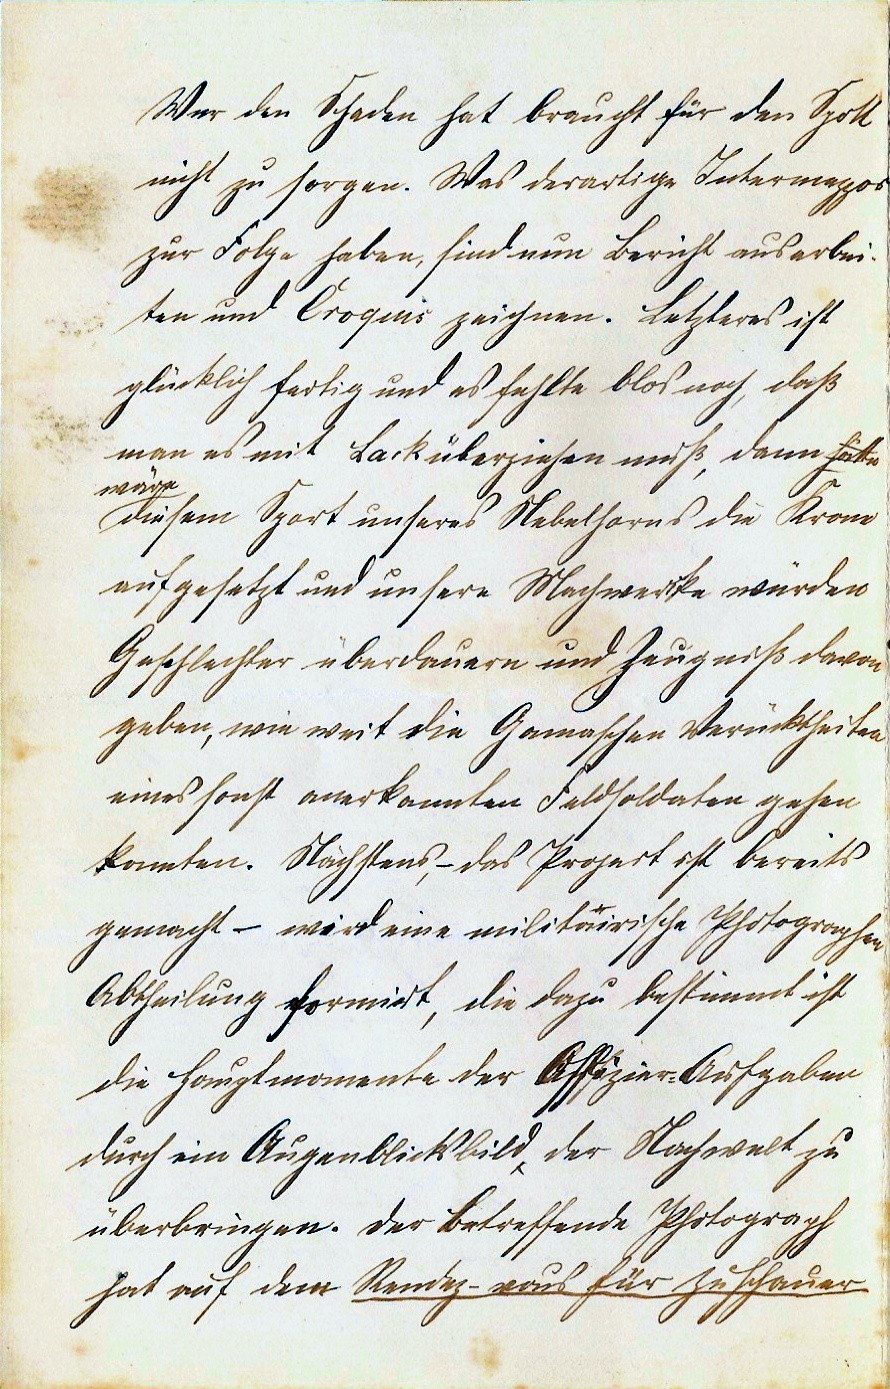 Wer den Schaden hat braucht für den Spott
nicht zu sorgen. Was derartige Intermezzos
zur Folge haben, sind nun Bericht ausarbei-
ten und Croquis zeichnen. Letzteres ist
glücklich fertig und es fehlte blos noch, daß
man es mit Lack überziehen muß, dann hätte
wäre
diesem Sport unseres Nebelhorns die Krone
aufgesetzt und unsere Machwerke würden
Geschlechter überdauern und Zeugniß davon
geben, wie weit die Gamaschen Verücktheiten
eines sonst anerkannten Feldsoldaten gehen
konnten. Nächstens, - das Project ist bereits
gemacht - wird eine militäirische Photographen
Abtheilung formirt, die dazu bestimmt ist
die Hauptmomente der Offizier-Aufgaben
durch ein Augenblicksbild, der Nachwelt zu
überbringen. Der betreffende Photograph
hat auf dem Rendez-vous für Zuschauer